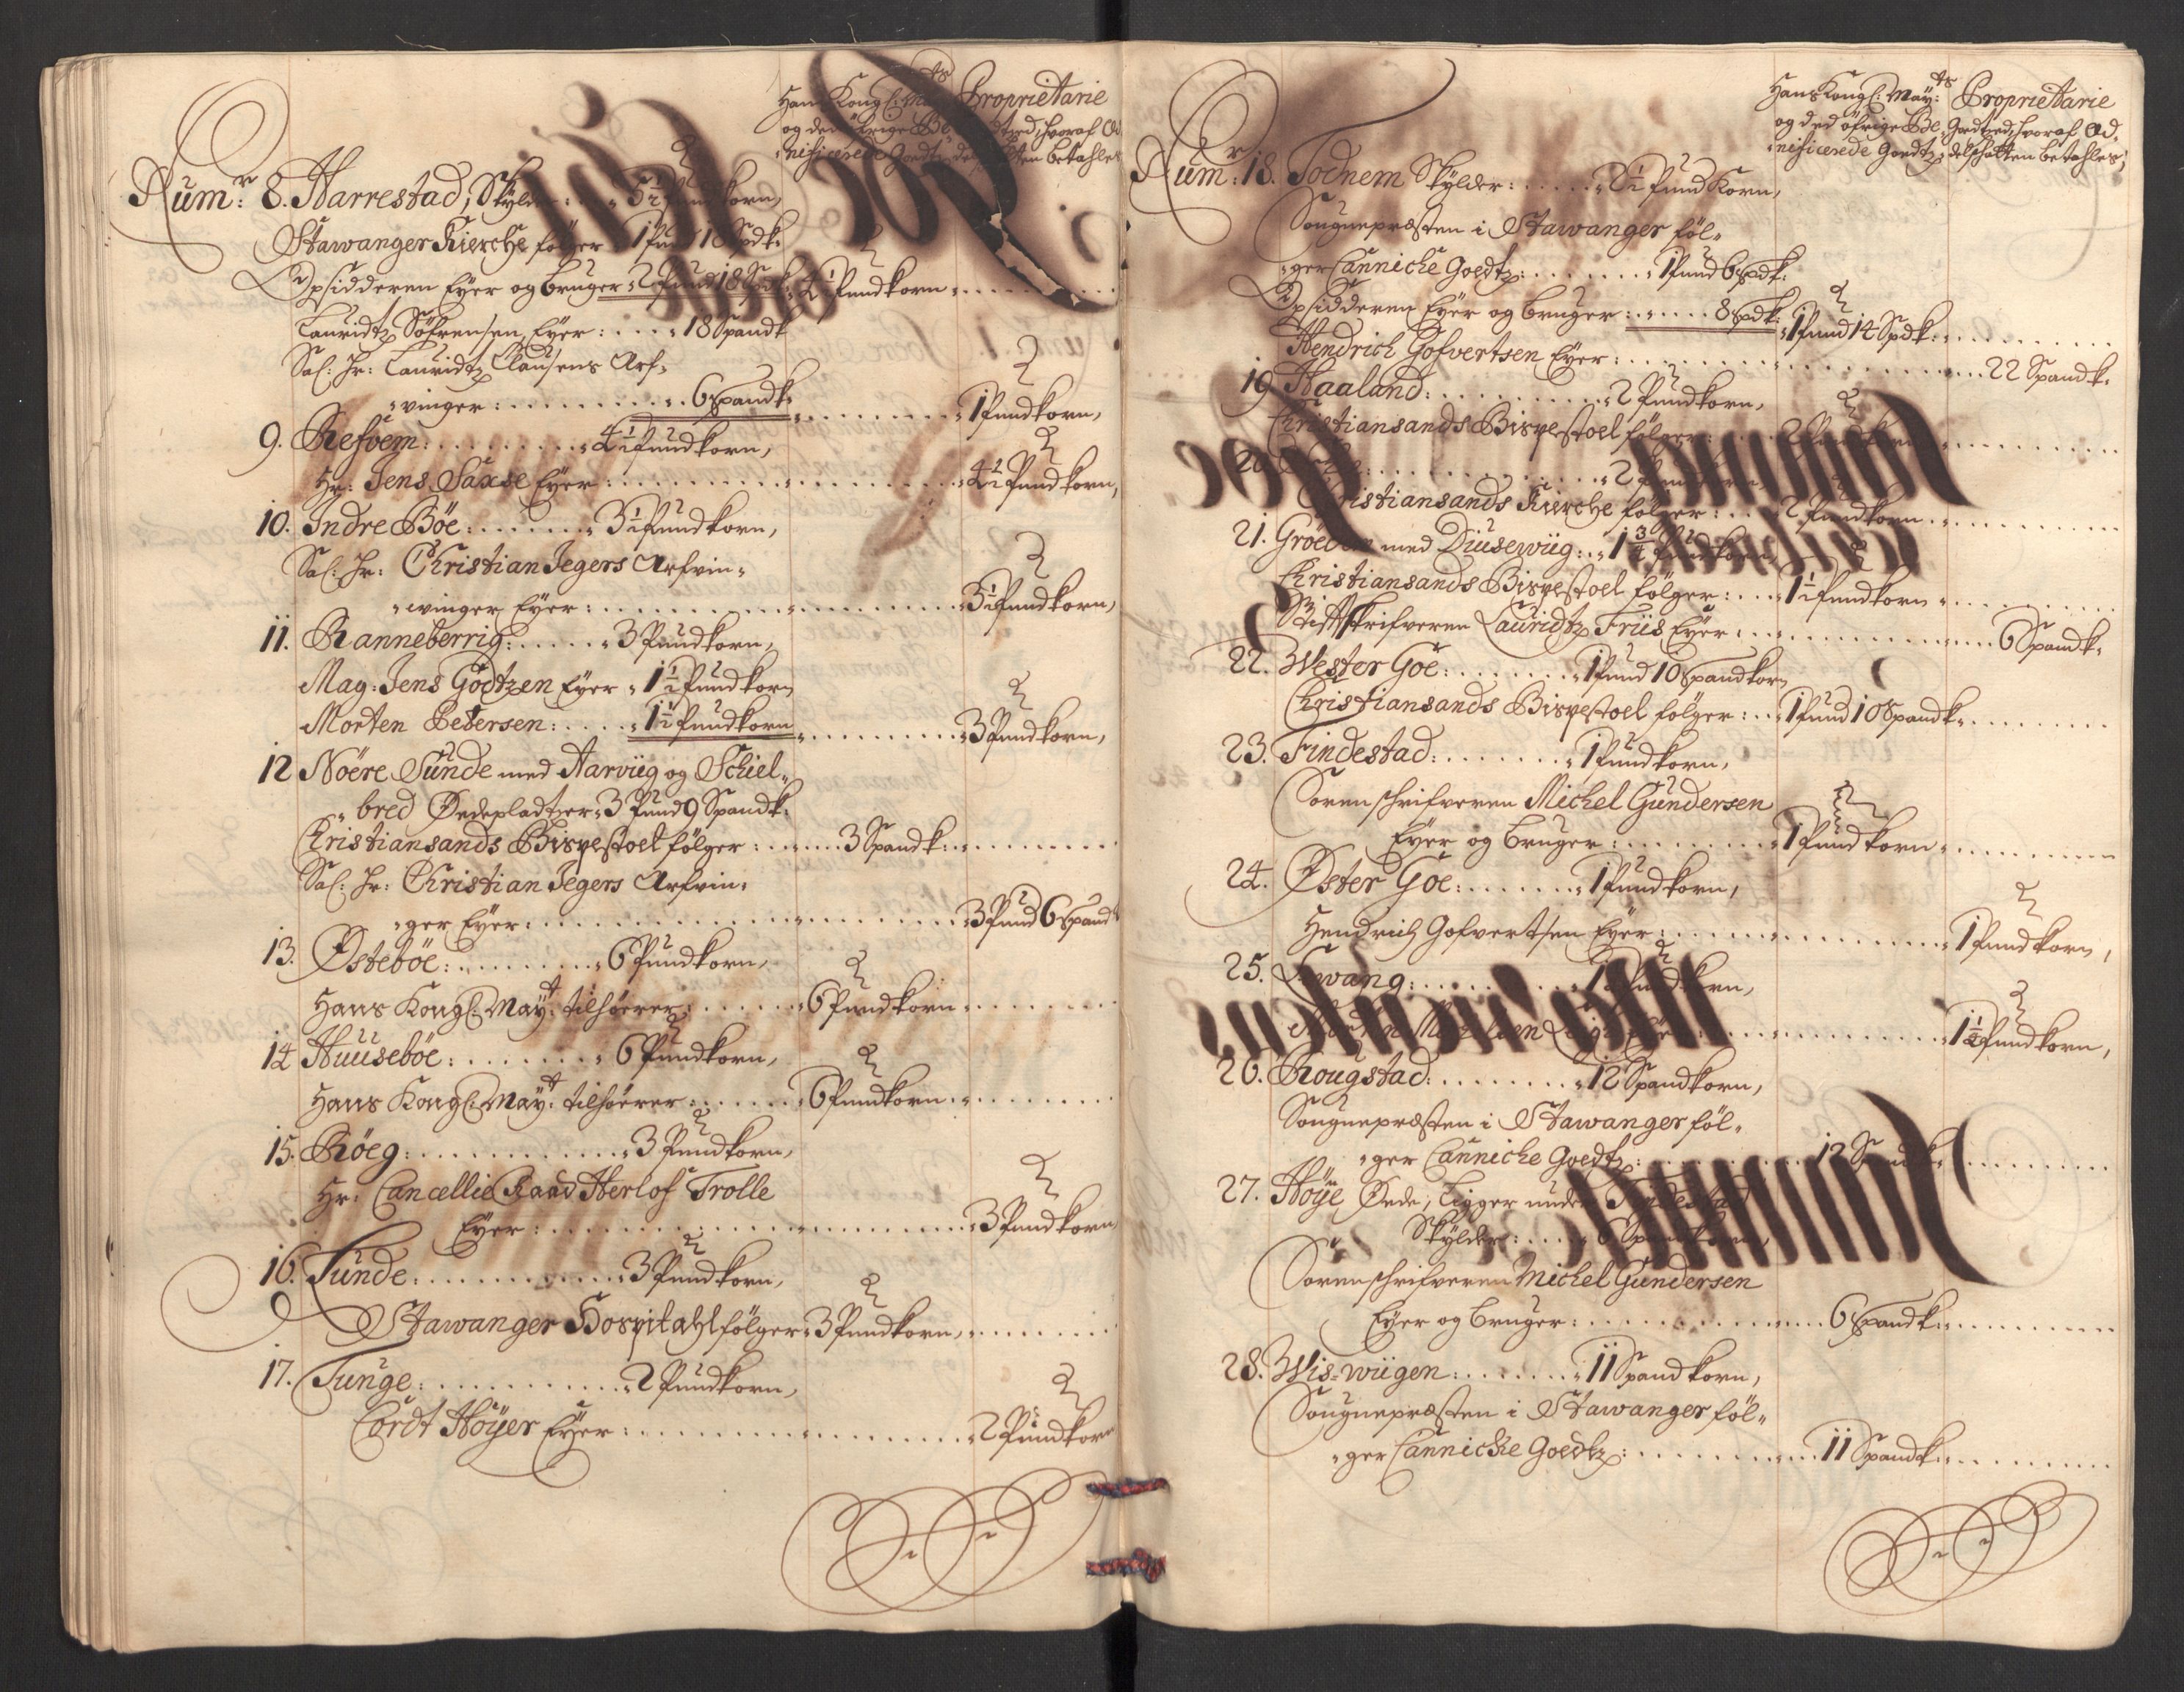 Hans Kongl: Mayts Proprietarie
og ded öfrige Be- Goedtzed, hvoraf Od,
"nificerede Goedtz: delschatten betahles
Numr: 8. Harrestad, Skylder: 5½ Pundkorn,
Stawanger Kierche følger 1 Pund 18 Spdk:
Opsidderen Eyer og bruger 2 Pund 18 Spdk: 4½ Pundkorn
Lauridtz Söfrensen Eyer: 18 Spandk
Sal: Hr: Lauridtz Clausens Arf,
"vinger: 6 Spandk 1 Pundkorn,
9. Refvem: 4½ Pundkorn,
Hr: Jens Saxse Eyer: 4½ Pundkorn,
10. Indre Böe: 3½ Pundkorn,
Sal: Hr: Christian Jegers Arfvin,
"winger Eyer: 3½ Pundkorn,
11. Ranneberrig: 3 Pundkorn,
Mag: Jens Godtzen Eyer 1½ Pundkorn
Morten Petersen: 1½ Pundkorn 3 Pundkorn,
12 Nöere Sunde med Aarviig og Schiel,
"bred Ødepladtzer 3 Pund 9 Spandk:
Christiansands Bispestoel følger: 3 Spandk:
Sal: Hr: Christian Jegers Arfvin,
"ger Eyer: 3 Pund 6 Spand
13. Østeböe: 6 Pundkorn,
Hans Kongl: Mayt: tilhörer: 6 Pundkorn
14 Huuseböe: 6 Pundkorn,
Hans Kongl: Mayt: tilhöerer: 6 Pundkorn
15. Röeg: 3 Pundkorn,
Hr: Cancellie Raad Herlof Trolle
Eyer: 3 Pundkorn
16. Tunde: 3 Pundkorn,
Stawanger Hospitahl følger 3 Pundkorn,
17. Tunge: 2 Pundkorn,
Cordt Höyer Eyer: 2 Pundkorn
Hans Kongl: Mayts: Proprietarie
og ded öfrige Be- Goedtzed, hvoraf Od,
"nificerede Goedtz: delschatten betahles,
Numr: 18. Todnem Skylder: 2½ Pund Korn,
Sougnepræsten i Stawanger föl,
"ger Canniche Goedtz: 1 Pund 6 spdk:
Opsidderen Eyer og bruger: 8 spdk: 1 Pund 14 Spdk:
Hendrich Gofvertsen Eyer: 22 Spandk:
19 Haaland: 2 Pundkorn,
Christiansands Bispestoel følger: 2 Pundkorn
20 2 Pundkorn,
Christiansands Kierche følger: 2 Pundkorn
21. Gröedem med Diusewiig: 1¾ Pundkorn
Christiansands Bispestoel følger: 1½ Pundkorn
Stiftskrifveren Lauridtz Friis Eyer: 6 Spandk:
22. Wester Goe: 1 Pund 10 Spandkorn
Christiansands Bispestoel følger: 1 Pund 10 Spandk:
23. Findestad: 1 Pundkorn,
Sorenschrifveren Michel Gundersen
Eyer og bruger: 1 Pund korn
24. Øster Goe: 1 Pundkorn,
Hendrich Gofvertsen Eyer: 1 Pundkorn,
25. Lewang: Pundkorn,
Eyer: Pundkorn,
26. Rougstad: 12 Spandkorn,
Sougnepræsten i Stawanger föl,
"ger Canniche Goedtz: 12 Spandk:
27. Höye Øde, ligger under Findestad
Skylder: 6 Spandkorn,
Sorenschrifveren Michel Gundersen
Eyer og bruger: 6 Spandk:
28. Wis-wiigen: 11 Spandkorn,
Sougnepræsten i Stawanger föl,
"ger Cannicke Goedtz: 11 Spandk: